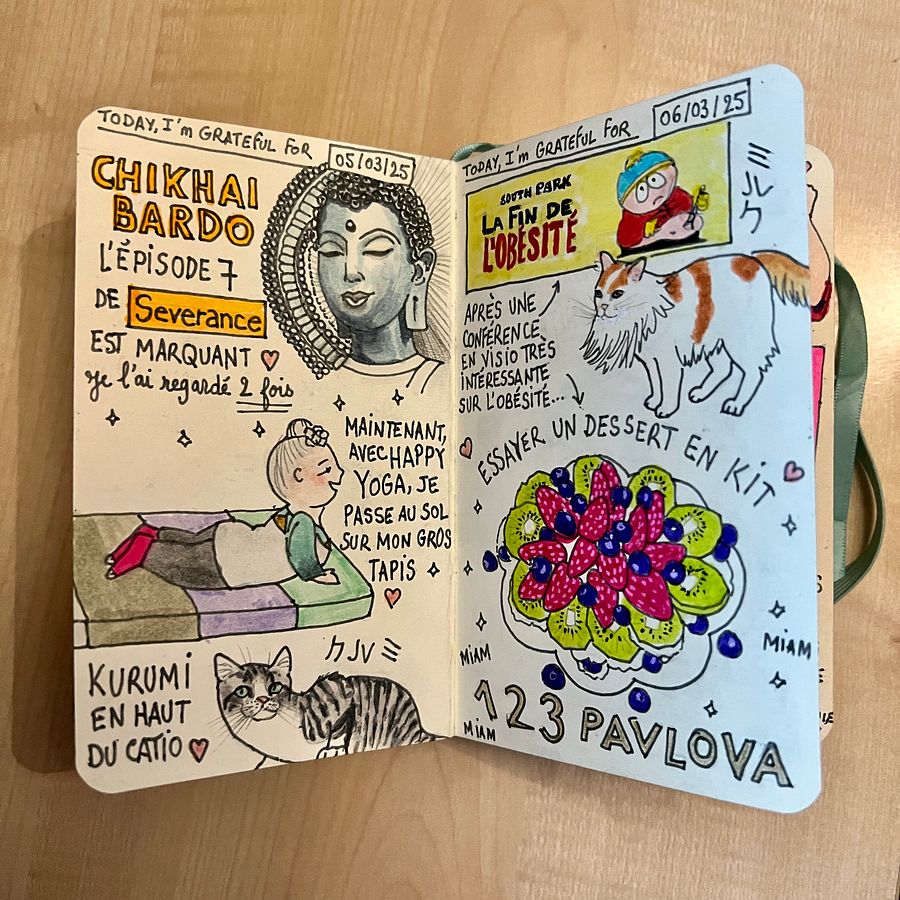 TODAY, I'm GRATEFUL FOR
05/03/25
CHIKHAI
BARDO
L'ÉPISODE 7
DE Severance
EST MARQUANT
je l'ai regardé 2 fois
MAINTENANT,
AVEC HAPPY
YOGA, JE
PASSE AU SOL
SUR MON GROS
TAPIS
KURUMI
EN HAUT
DU CATIO
クルミ
TODAY, I'm GRATEFUL FOR
06/03/25
SOUTH PARK
LA FIN DE
L'OBÉSITÉ
ミルク
APRÈS UNE
CONFÉRENCE
EN VISIO TRÈS
INTÉRESSANTE
SUR L'OBÉSITÉ...
ESSAYER UN DESSERT EN KIT
MIAM
MIAM
MIAM
123 PAVLOVA